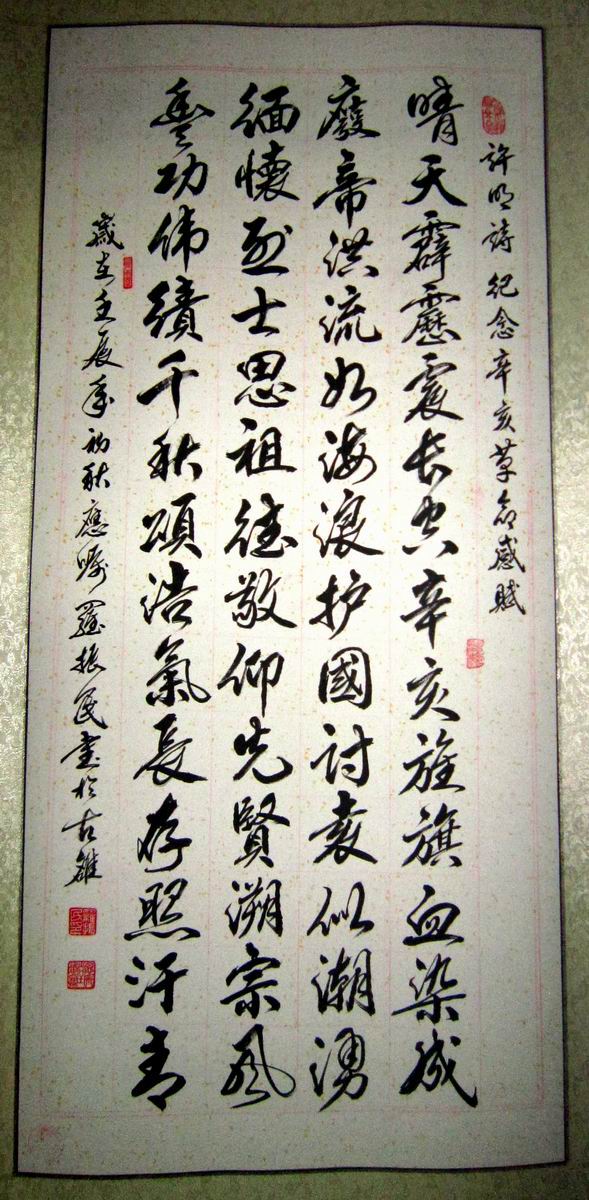 許明詩 紀念辛亥革命感賦
晴天霹靂震长空辛亥旌旗血染成
廢帝洪流如海浪护國討袁似潮湧
緬懷烈士思祖德敬仰先賢溯宗風
豊功伟績千秋頌浩氣長存照汗青
歲在壬辰年初秋應嘱羅振民書於古雒